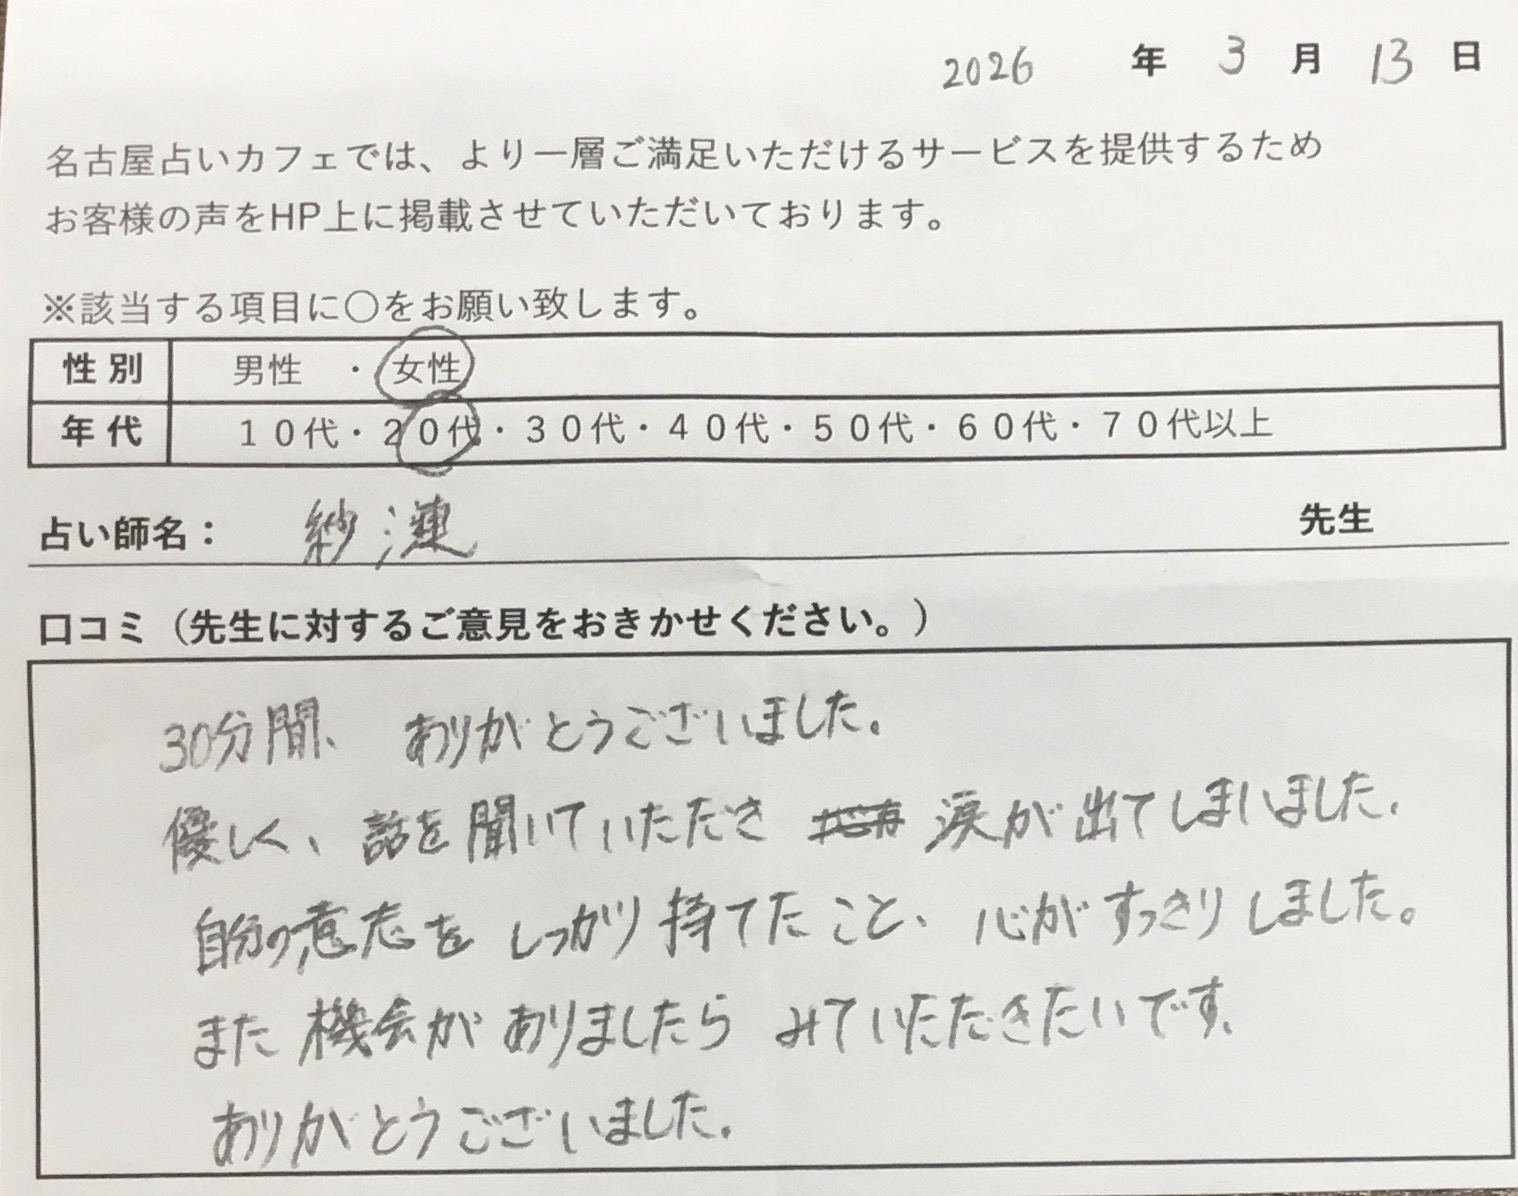 2026 年 3 月 13 日
名古屋占いカフェでは、より一層ご満足いただけるサービスを提供するため
お客様の声をHP上に掲載させていただいております。
※該当する項目に〇をお願い致します。
性別 男性 ・ 女性
年代 10代・20代・30代・40代・50代・60代・70代以上
占い師名： 紗漣 先生
口コミ（先生に対するご意見をおきかせください。）
30分間、ありがとうございました。
優しく、話を聞いていただき 涙が出てしまいました。
自分の意志をしっかり持てたこと、心がすっきりしました。
また機会がありましたら みていただきたいです。
ありがとうございました。